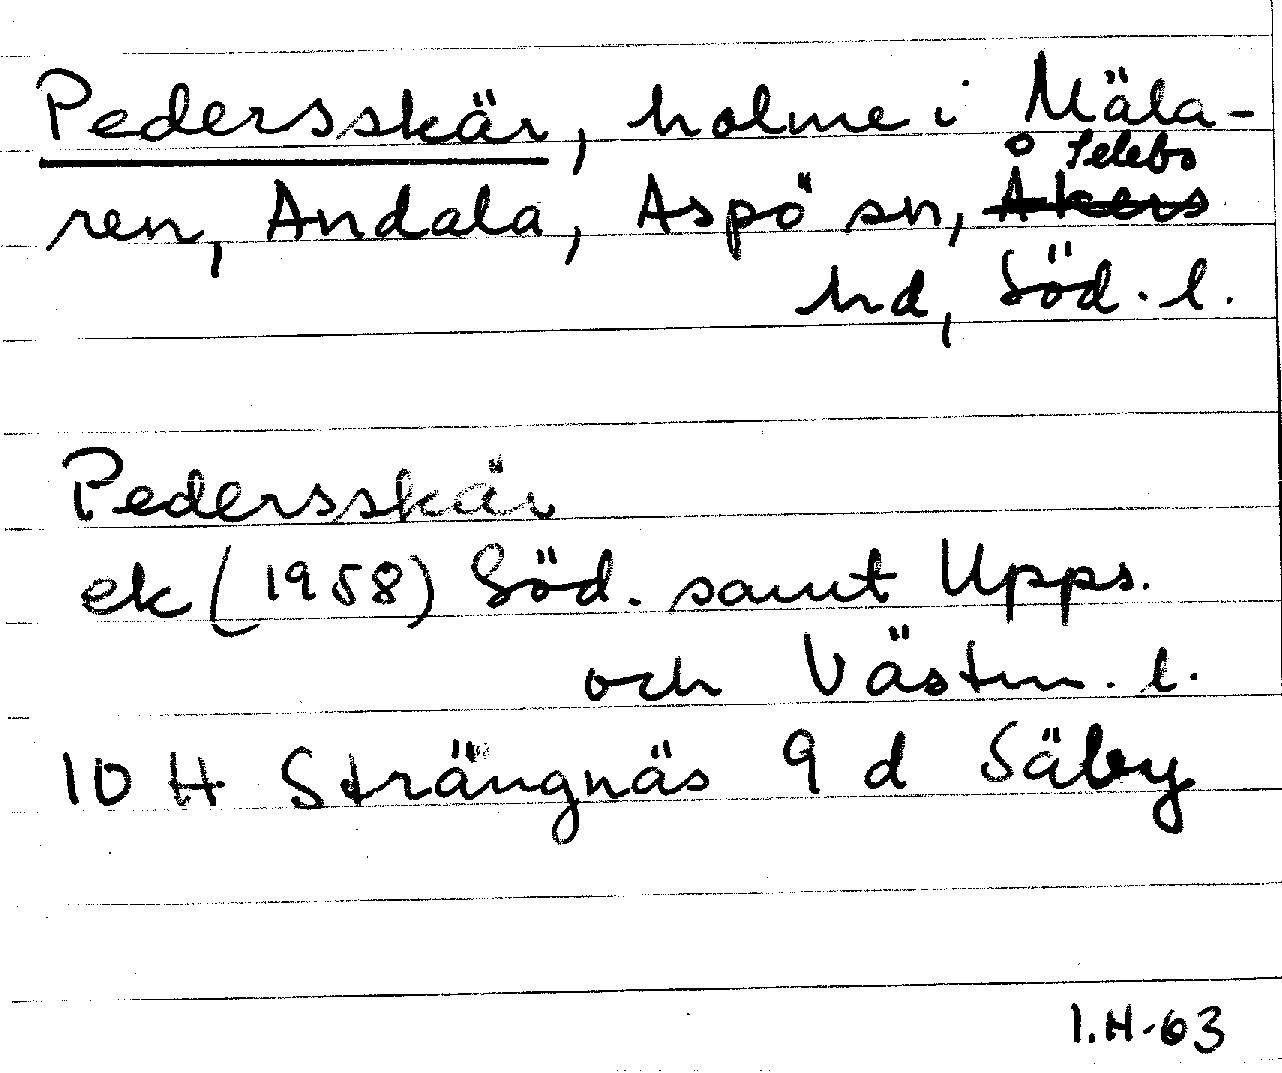 Pedersskär, holme i Mäla-
ren, Andala, Aspö sn, Åkers Selebo
hd, Söd. l.
Pedersskär
ek (1958) Söd. samt Upps.
och Västm. l.
10 H Strängnäs 9 d Säby
I.H-63